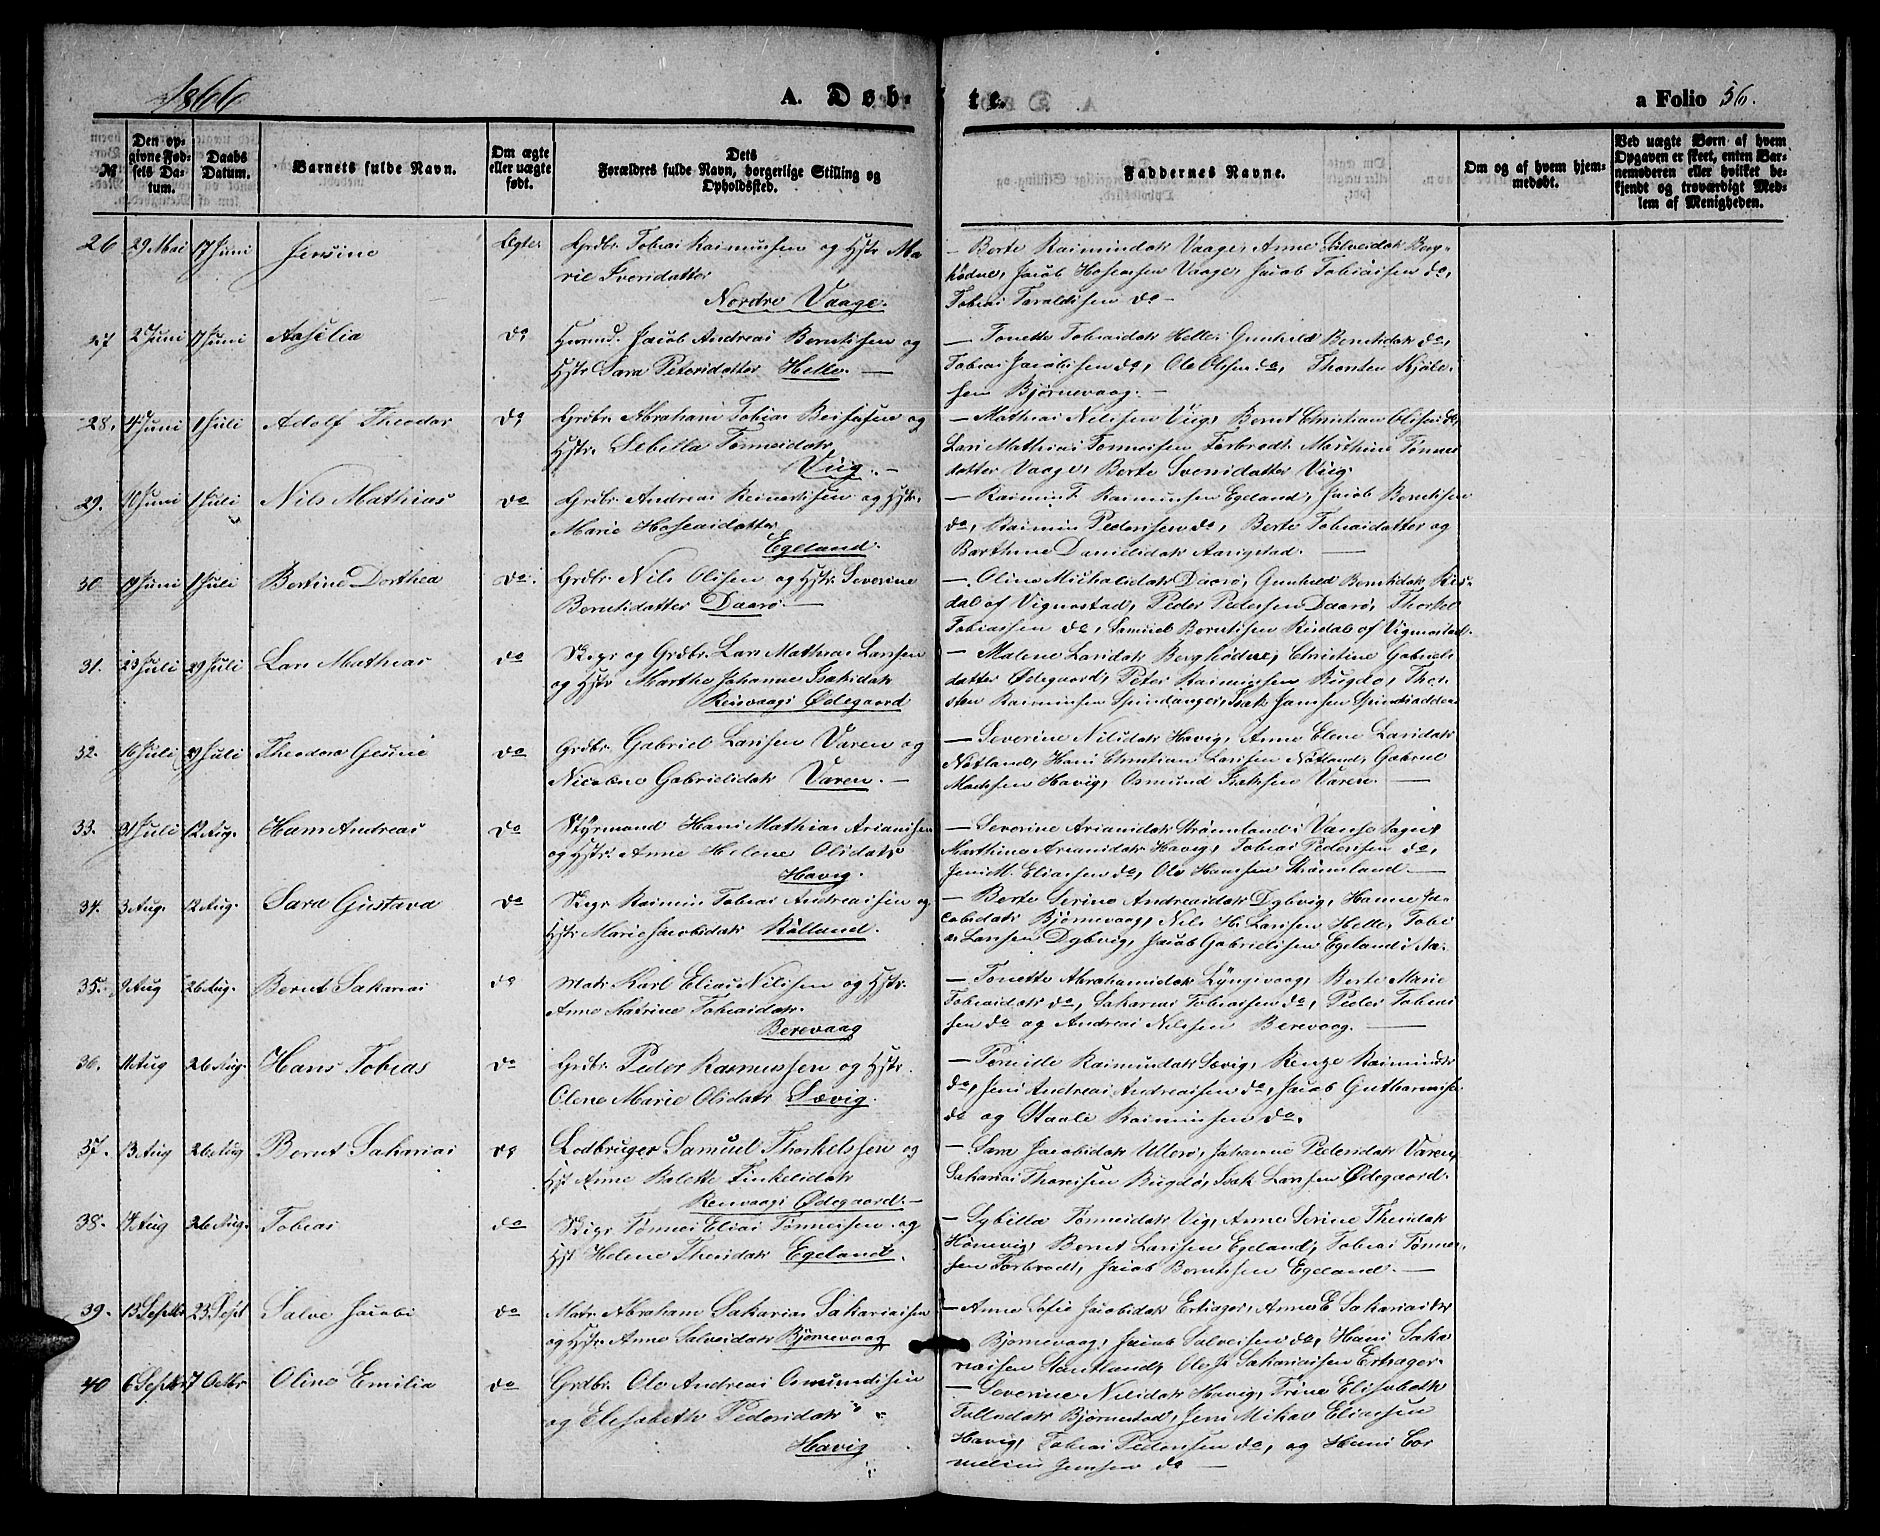 1866
A. Døb-
te.
a Folio 56.
№
Den op-
givne Fød-
sels Da-
tum.
Daabs
Datum.
Barnets fulde Navn.
Om ægte
eller uægte
født.
Dets
Forældres fulde Navn, borgerlige Stilling og
Opholdssted.
Faddernes Navne.
Om og af hvem hjem-
medøbt.
Ved uægte Børn af hvem
Opgaven er skeet, enten Bar-
nemoderen eller hvilket be-
kjendt og troværdigt Med-
lem af Menigheden.
26 29 Mai 17 Juni Jersine Ægte Grdbr. Tobias Rasmussen og Hstr. Ma-
rie Svensdatter
Nordre Vaage.
— Berte Rasmusdatr Vaage, Anne Berg-
hødne, Jacob Hoseassen Vaage, Jacob Tobiassen do,
Tobias Taraldsen do —
27 2 Juni 17 Juni Aselia do Huusmd. Jacob Andreas Berntssen og
Hstr. Sara Petersdatter Helle. —
— Tonette Tobiasdatr Helle, Gunhild Berntsdatr do,
Tobias Jacobsen do, Ole Olsen do, Thorsten Kjøls-
sen Bjørnevaag. —
28. 4 Juni 1 Juli Adolf Theodor do Grdbr. Abraham Tobias og
Hstr. Sebilla Tønnesdatr
Viig. —
— Mathias Nilssen Viig, Bernt Christian Olssen do,
Lars Mathias Tønnessen Torbrodt, Marthine Tønnes-
datter Vaage, Berte Svensdatter Viig.
29. 10 Juni 1 Juli Nils Mathias do Grdbr. Andreas Reinertssen og Hstr.
Marie Hoseasdatter
Egeland.
— Rasmus T. Rasmussen Egeland, Jacob Berntssen
do, Rasmus Pederssen do, Berte Tobiasdatter og
Barthine Danielsdatr Aarigstad. —
30. 19 Juni 1 Juli Bertine Dorthea do. Grdbr. Nils Olssen og Hstr. Severine
Berntsdatter Daarø. —
— Oline Michalsdatr Daarø, Gunhild Berntsdatr Ris-
dal af Vigmostad, Peder Pedersen Daarø, Thorkel
Tobiassen do, Samuel Berntssen Risdal af Vigmostad.
31. 23 Juli 29 Juli Lars Mathias do Skpr og Grdbr. Lars Mathias Larssen
og Hstr Marthe Johanne Isaksdatr
Rensvaags Ødegaard
— Malene Larsdatr Berghødne, Christine Gabriels-
datter Ødegaard, Peter Rasmussen Bugdø, Thor-
sten Rasmussen Spindanger, Isak Jansen Spindsodden
32. 16 Juli 29 Juli Theodora Gesine do Grdbr. Gabriel Larssen Varen og
Nicoline Gabrielsdatr Varen. —
— Severine Nilsdatr Havig, Anne Elene Larsdatr
Nøtland, Hans Christian Larssen Nøtland, Gabriel
Madssen Havig, Osmund Isakssen Varen. —
33. 31 Juli 12 Aug. Hans Andreas do Styrmand Hans Mathias Arianssen
og Hstr. Anne Helene Olsdatr
Havig.
— Severine Ariansdatr Strømland i Vanse Sogn,
Marthine Ariansdatr Havig, Tobias Pederssen do,
Jens M. Eliassen do, Ole Hanssen Strømland. —
34. 3 Aug. 12 Aug. Sara Gustava do Skpr Rasmus Tobias Andreassen og
Hstr Marie Jacobsdatr Kålland.
— Berte Serine Andreasdatr Dybvig, Hanne Ja-
cobsdatr Bjørnevaag, Nils H. Larssen Helle, Tobi-
as Larssen Dybvig, Jacob Gabrielssen Egeland i Aa.
35. 9 Aug 26 Aug. Bernt Sakarias do Matr. Karl Elias Nilssen og Hstr.
Anne Katrine Tobiasdatr.
Berevaag
— Tonette Abrahamsdatr Lyngsvaag, Berte Marie
Tobiasdatr do, Sakarias Tobiassen do, Peder Tobias-
sen do og Andreas Nilssen Berevaag. —
36. 11 Aug 26 Aug. Hans Tobias do Grdbr. Peder Rasmussen og Hstr.
Olene Marie Olsdatr Sævig.
— Pernille Rasmusdatr Sævig, Rasmusdatr
do, Jens Andreas Andreassen do, Jacob Guthormss.
do og Staale Rasmussen do.
37. 13 Aug 26 Aug Bernt Sakarias do Lodbruger Samuel Thorkelssen og
Hst Anne Malette Tinkelsdatr
Rensvaags Ødegaard. —
— Sara Jacobsdatr Ullerø, Johanne Pedersdatr Varen,
Sakarias Thorsen Bugdø, Isak Larssen Ødegaard.
38. 14 Aug 26 Aug. Tobias do Skpr Tønnes Elias Tønnessen og
Hst Helene Theisdatr Egeland.
— Sybilla Tønnesdatr Vig, Anne Serine Theisdatr
Hønevig, Bernt Larssen Egeland, Tobias Tønnes-
sen Torbrodt, Jacob Berntssen Egeland. —
39. 15 Septbr 23 Sept Salve Jacobs do Matr. Abraham Sakarias Sakariassen
og Hstr. Anne Salvesdatr Bjørnevaag
— Anne Sofie Jacobsdatr Ertzager, Anne E Sakariasdtr
Bjørnevaag, Jacob Salvessen do, Hans Saka-
riassen Stautland, Ole J. Sakariassen Ertzager.
40 6 Septbr 7 Octbr Oline Emilia do Grdbr. Ole Andreas Osmundssen
og Elisabeth Pedersdatr
Havig
— Severine Nilsdatr Havig, Trine Elisabeth
Tollesdatr Bjørnestad, Jens Mikal Eliassen
Havig, Tobias Pederssen do, og Hans Cor-
nelius Jenssen do —